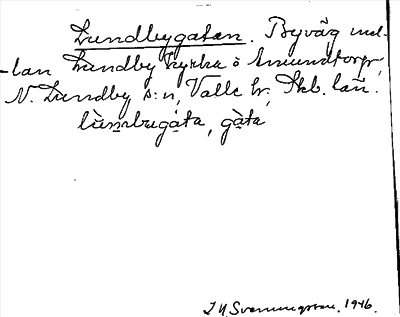 Lundbygatan. Byväg mel-
-lan Lundby kyrka o Amundtorp,
N. Lundby s:n, Valle hd. Skb. län.
lùmbugáta, gàta
1946.